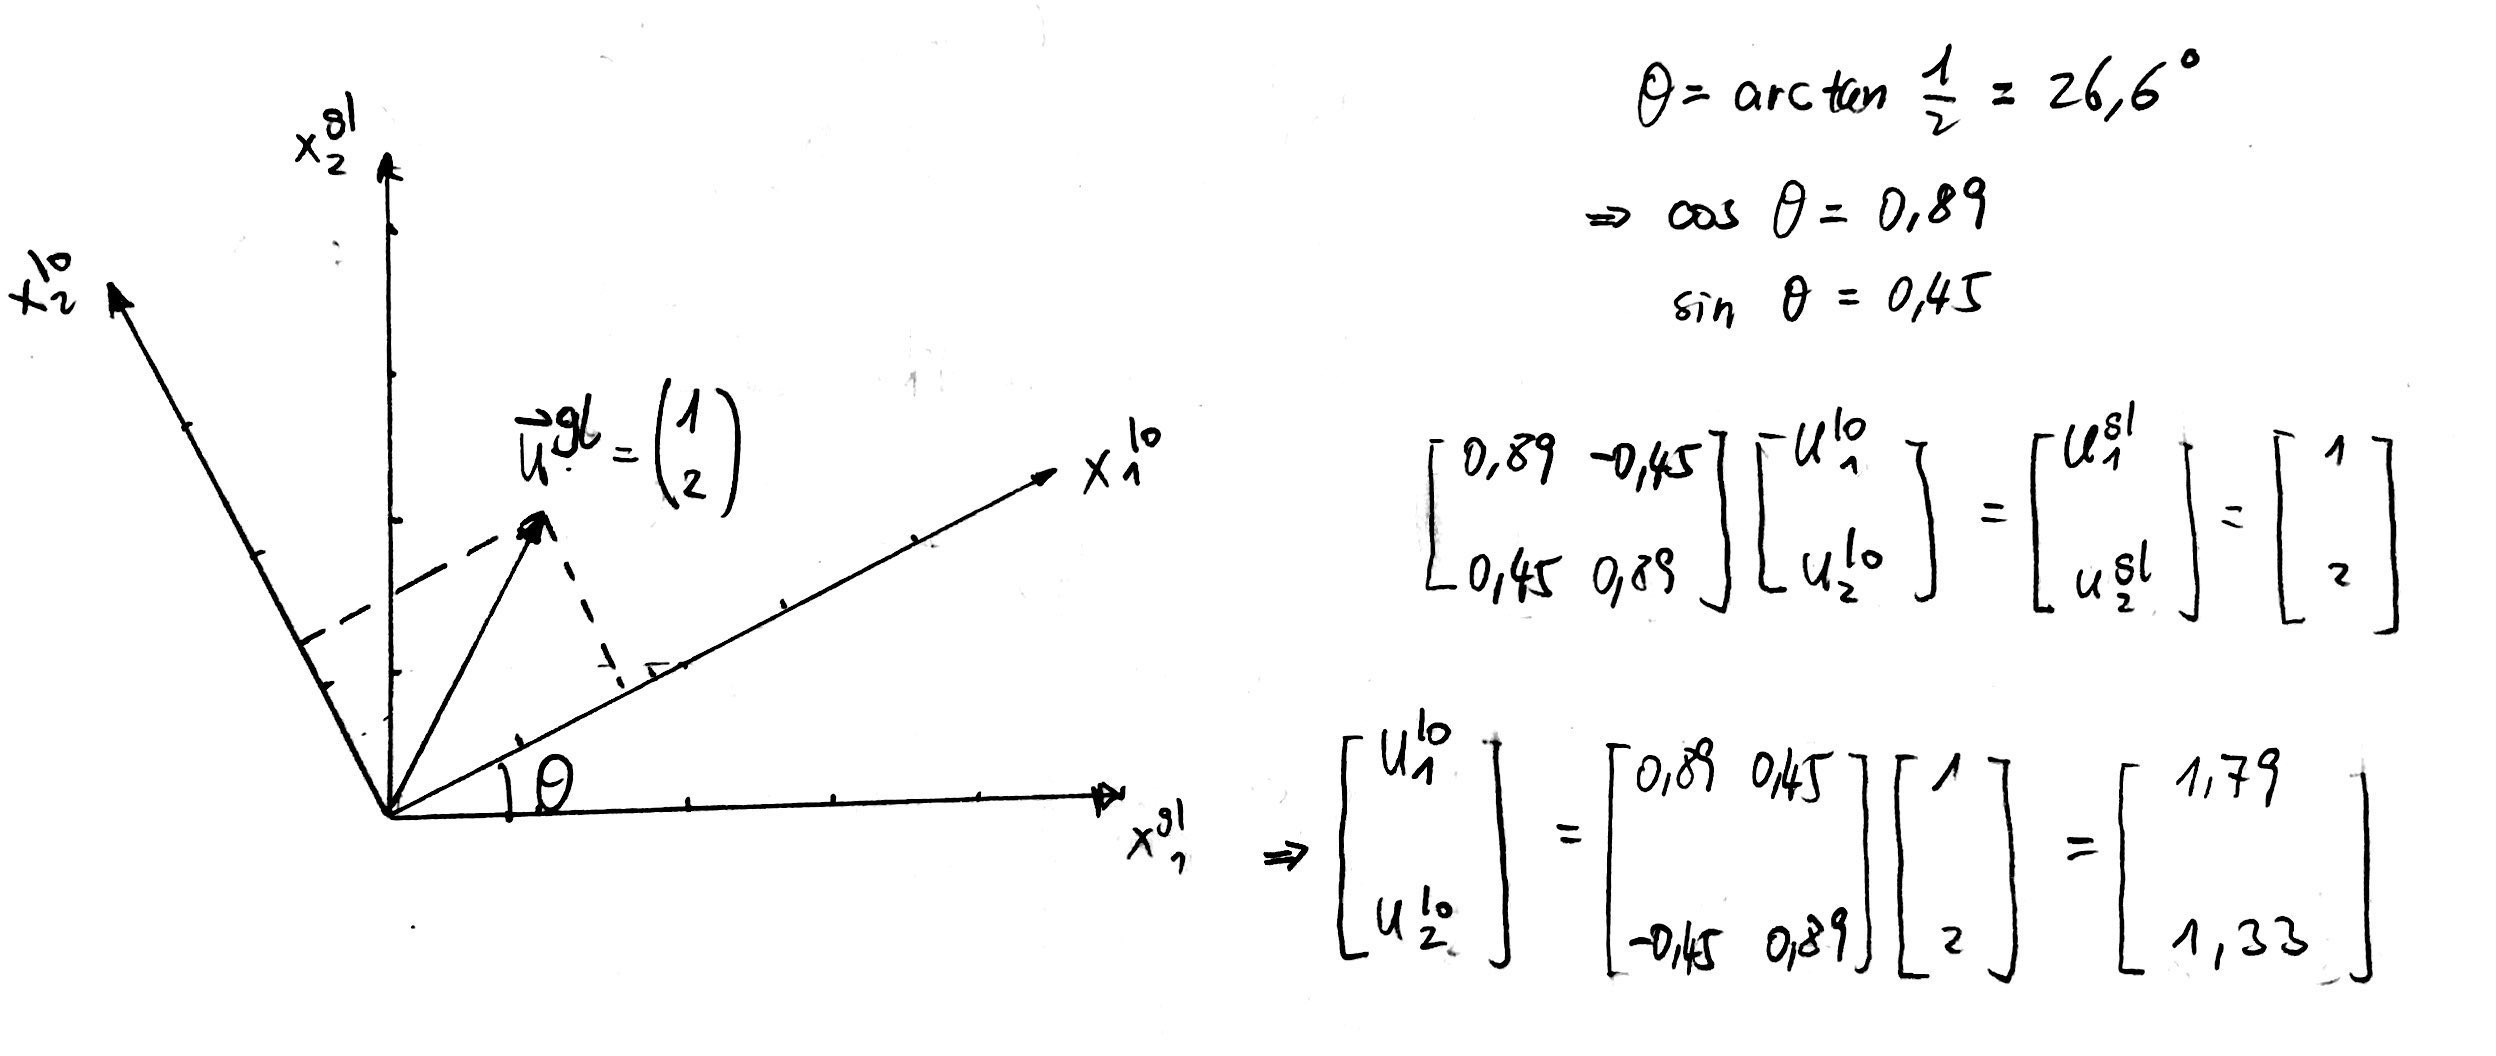 x₂^gl
x₂^lo
u⃗^gl = (1 2)
x₁^lo
θ
x₁^gl
θ = arctan 1/2 = 26,6°
⇒ cos θ = 0,89
sin θ = 0,45
[0,89 -0,45; 0,45 0,89] [u₁^lo; u₂^lo] = [u₁^gl; u₂^gl] = [1; 2]
⇒ [u₁^lo; u₂^lo] = [0,89 0,45; -0,45 0,89] [1; 2] = [1,79; 1,33]